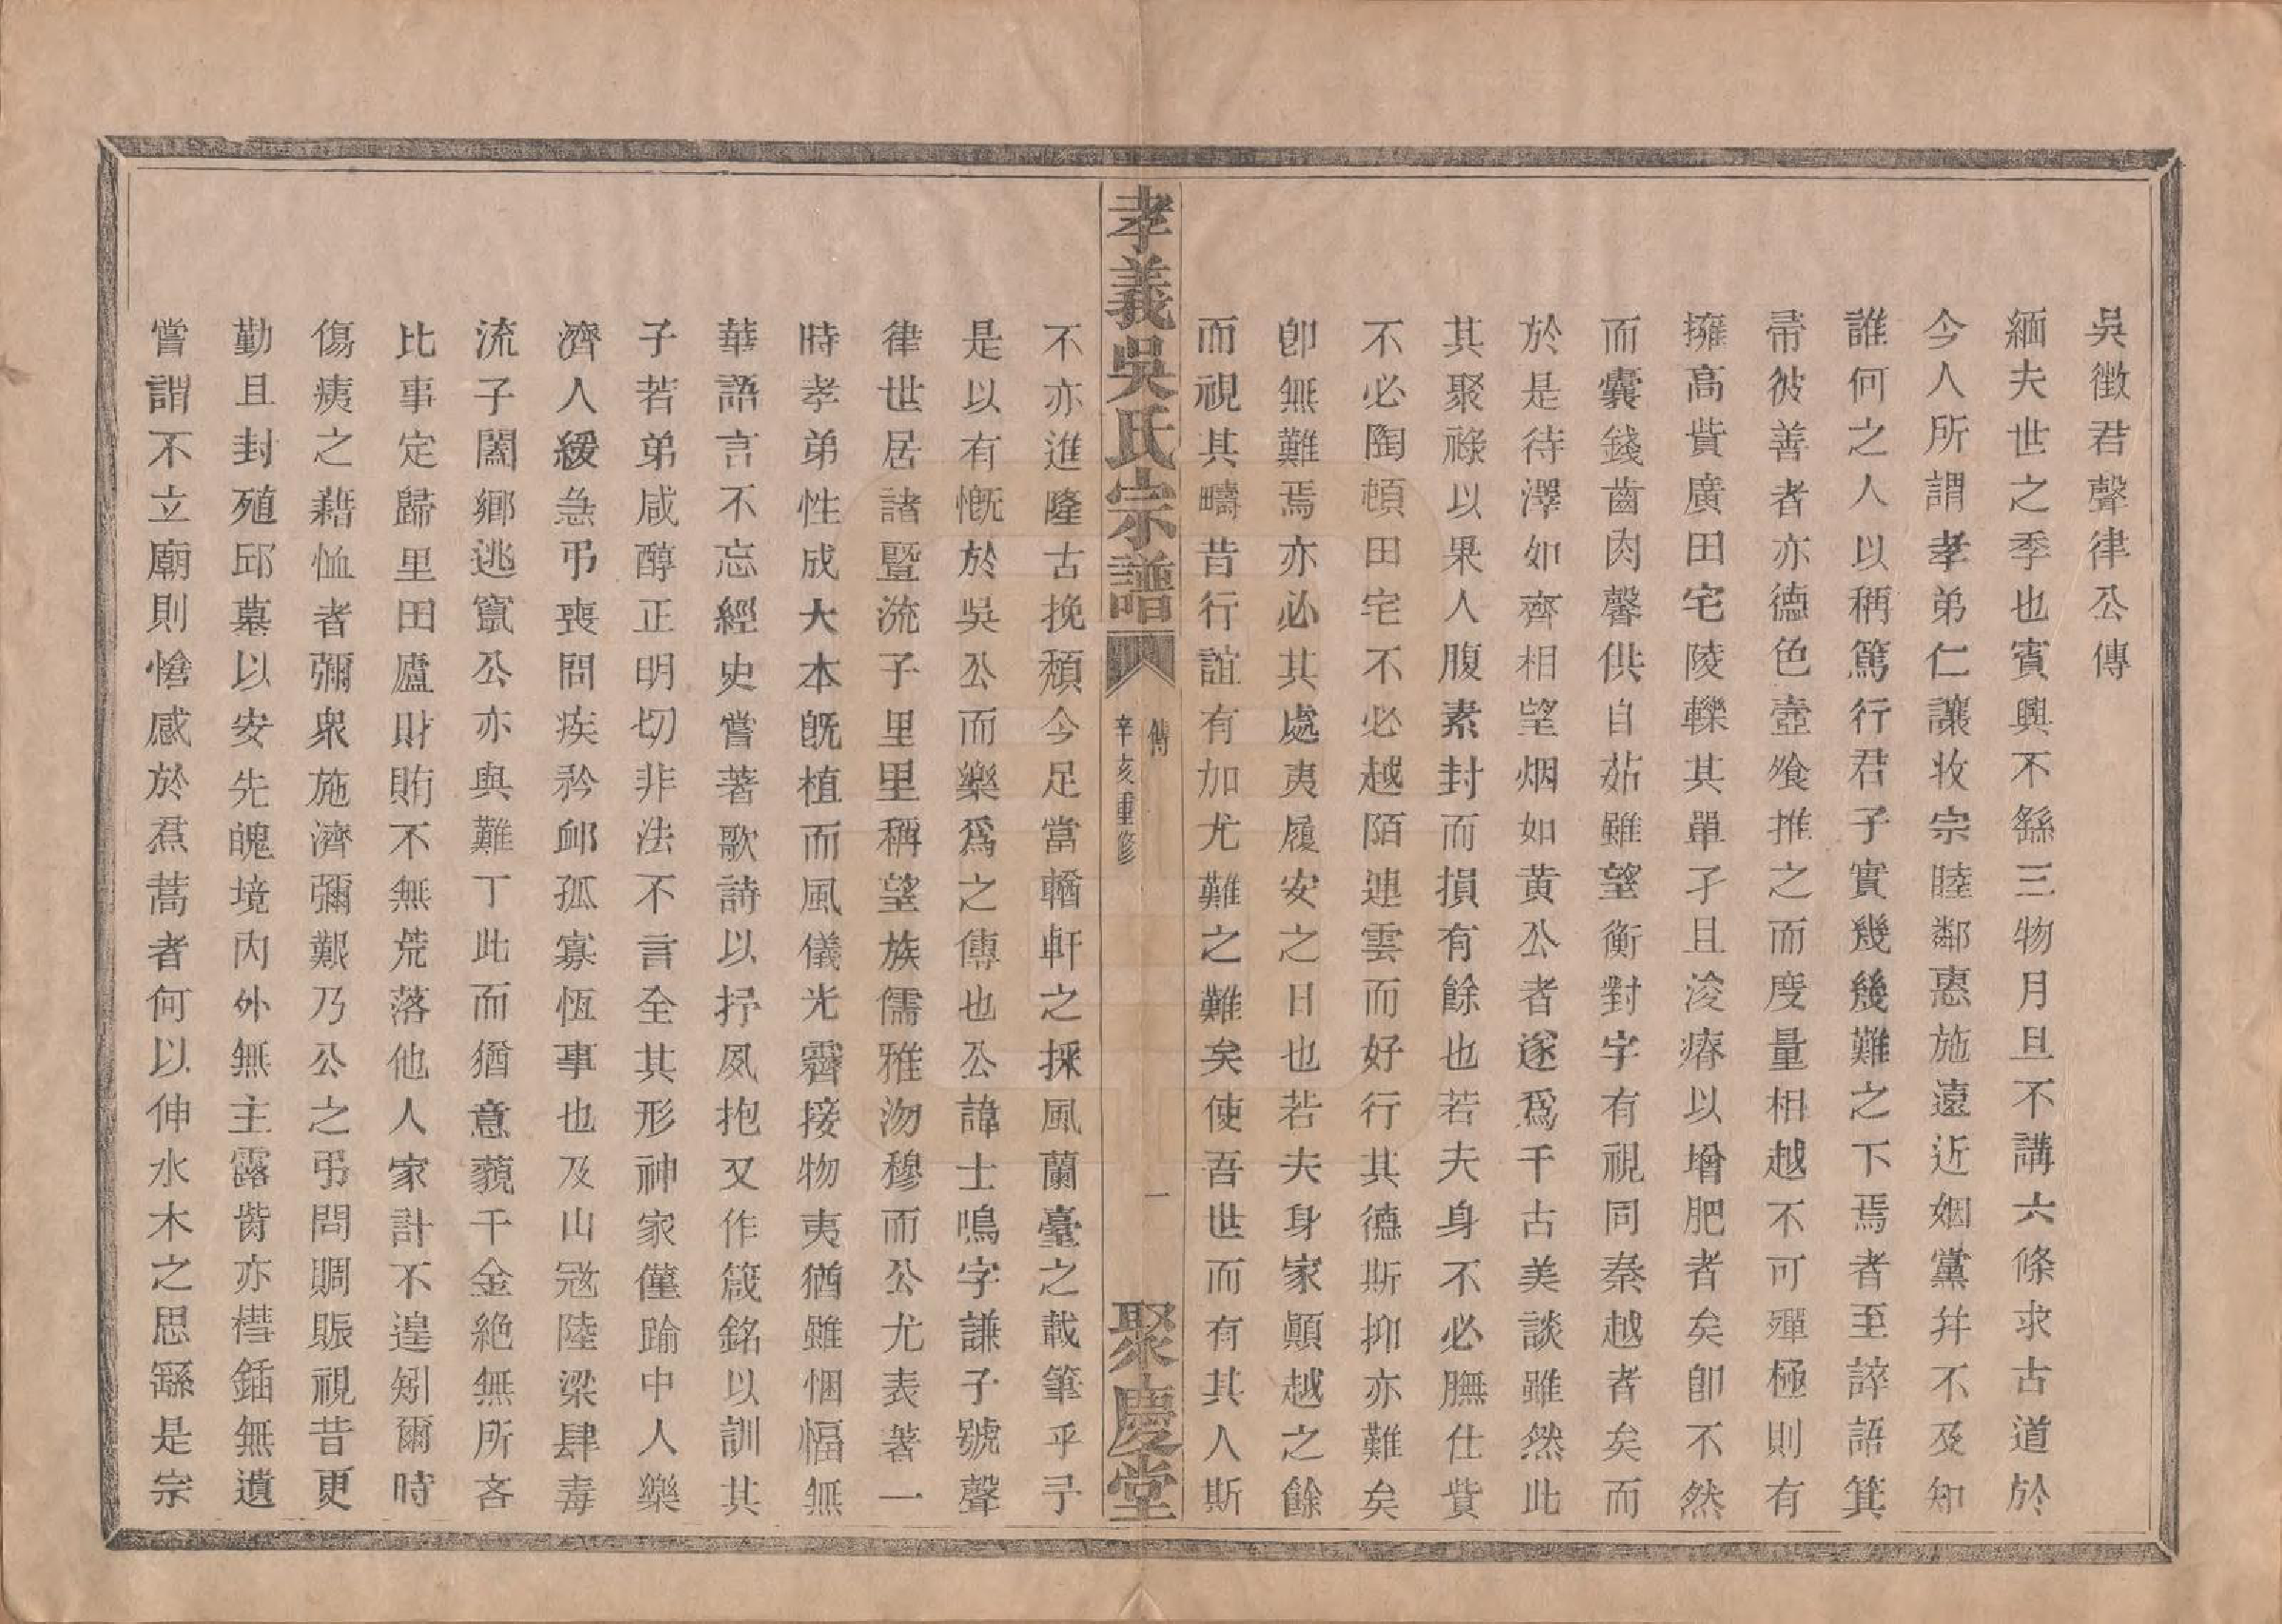 吳徵君聲律公傳
緬夫世之季也賓興不繇三物月旦不講六條求古道於
今人所謂孝弟仁讓收宗睦鄰惠施遠近姻黨幷不及知
誰何之人以稱篤行君子實幾幾難之下焉者至誶語箕
帚彼善者亦德色壺飱推之而度量相越不可殫極則有
擁高貲廣田宅陵轢其單孑且浚瘠以增肥者矣卽不然
而囊錢齒肉馨供自茹雖望衡對宇有視同秦越者矣而
於是待澤如齊相望烟如黄公者遂爲千古美談雖然此
其聚祿以果人腹素封而損有餘也若夫身不必膴仕貲
不必陶頓田宅不必越陌連雲而好行其德斯抑亦難矣
卽無難焉亦必其處夷履安之日也若夫身家顚越之餘
而視其疇昔行誼有加尤難之難矣使吾世而有其人斯
孝義吳氏宗譜
傳
辛亥重修
一
聚慶堂
不亦進隆古挽頹今足當輶軒之採風蘭臺之載筆乎予
是以有慨於吳公而樂爲之傳也公諱士鳴字謙子號聲
律世居諸暨流子里里稱望族儒雅沕穆而公尤表著一
時孝弟性成大本旣植而風儀光霽接物夷猶雖悃愊無
華語言不忘經史嘗著歌詩以抒夙抱又作箴銘以訓其
子若弟咸醇正明切非法不言全其形神家僅踰中人樂
濟人緩急弔喪問疾矜卹孤寡恆事也及山冦陸梁肆毒
流子闔鄉逃竄公亦與難丁此而猶意藐千金絶無所吝
比事定歸里田廬財賄不無荒落他人家計不遑矧爾時
傷痍之藉恤者彌衆施濟彌艱乃公之弔問賙賑視昔更
勤且封殖邱墓以安先魄境内外無主露胔亦櫘鍤無遺
嘗謂不立廟則愴感於焄蒿者何以伸水木之思繇是宗